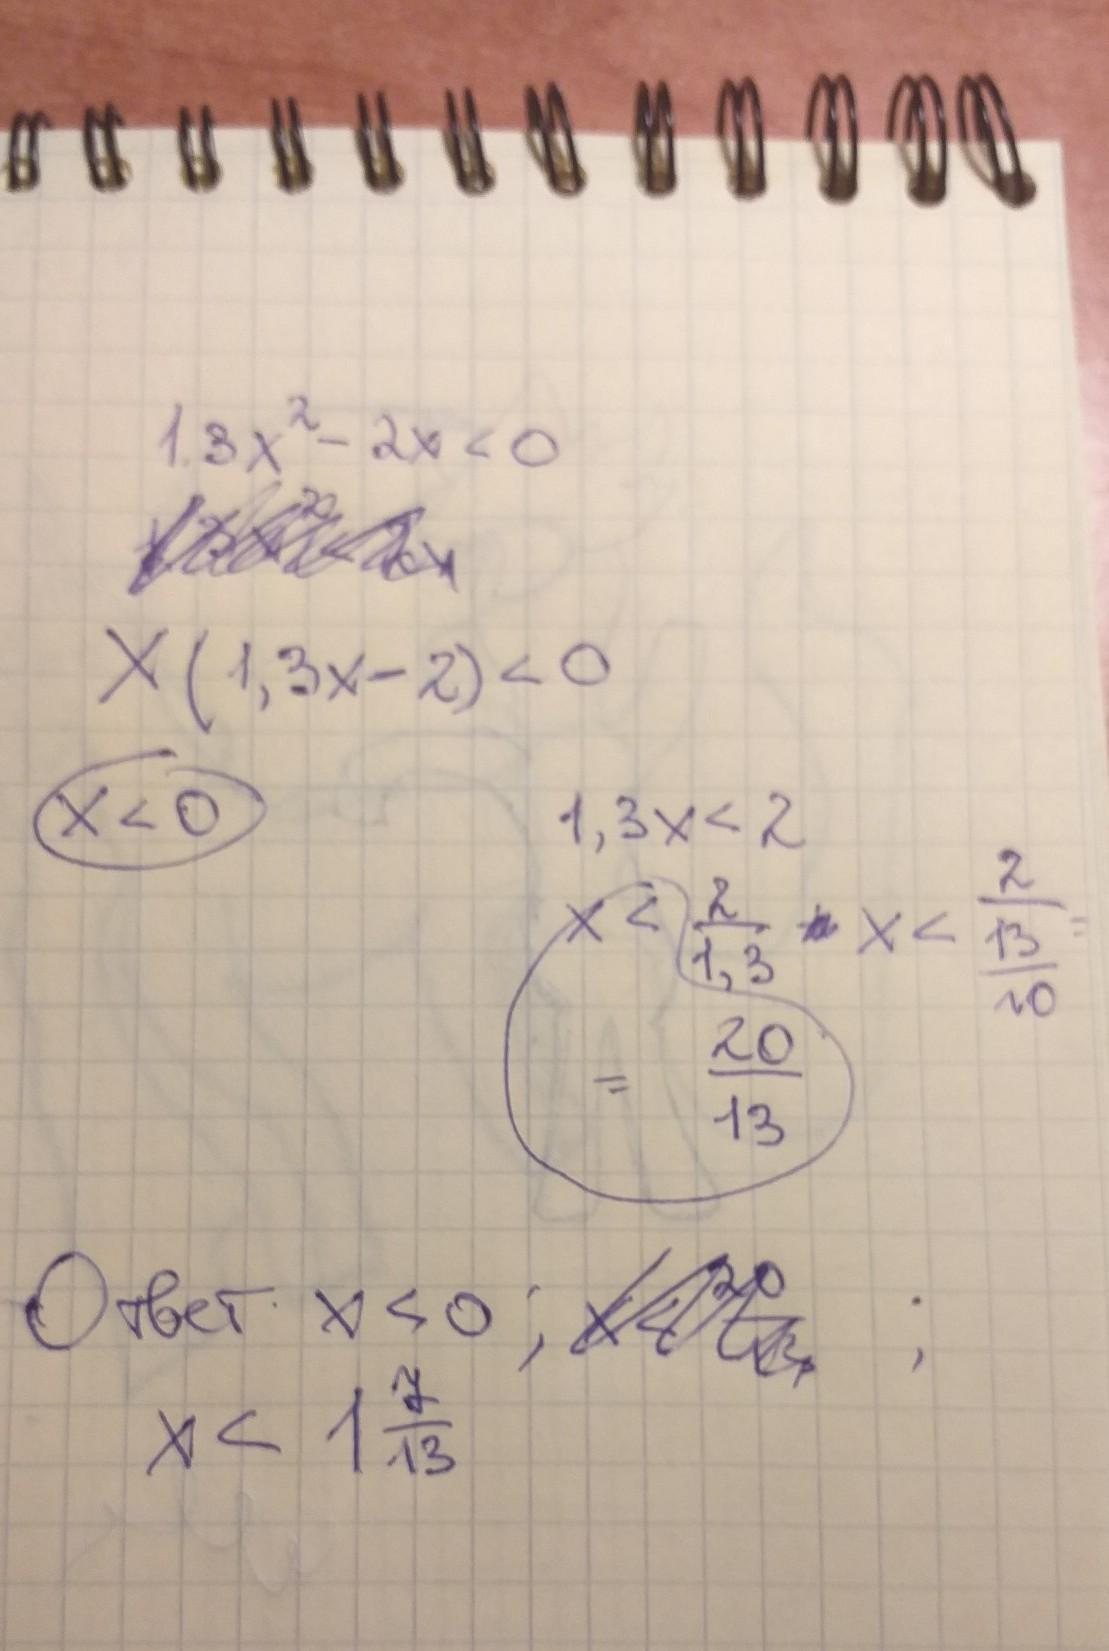 1.3x² - 2x < 0
x(1,3x - 2) < 0
x < 0
1,3x < 2
x < 2/1,3 x < 2/(13/10) =
= 20/13
Ответ x < 0; ;
x < 1 7/13